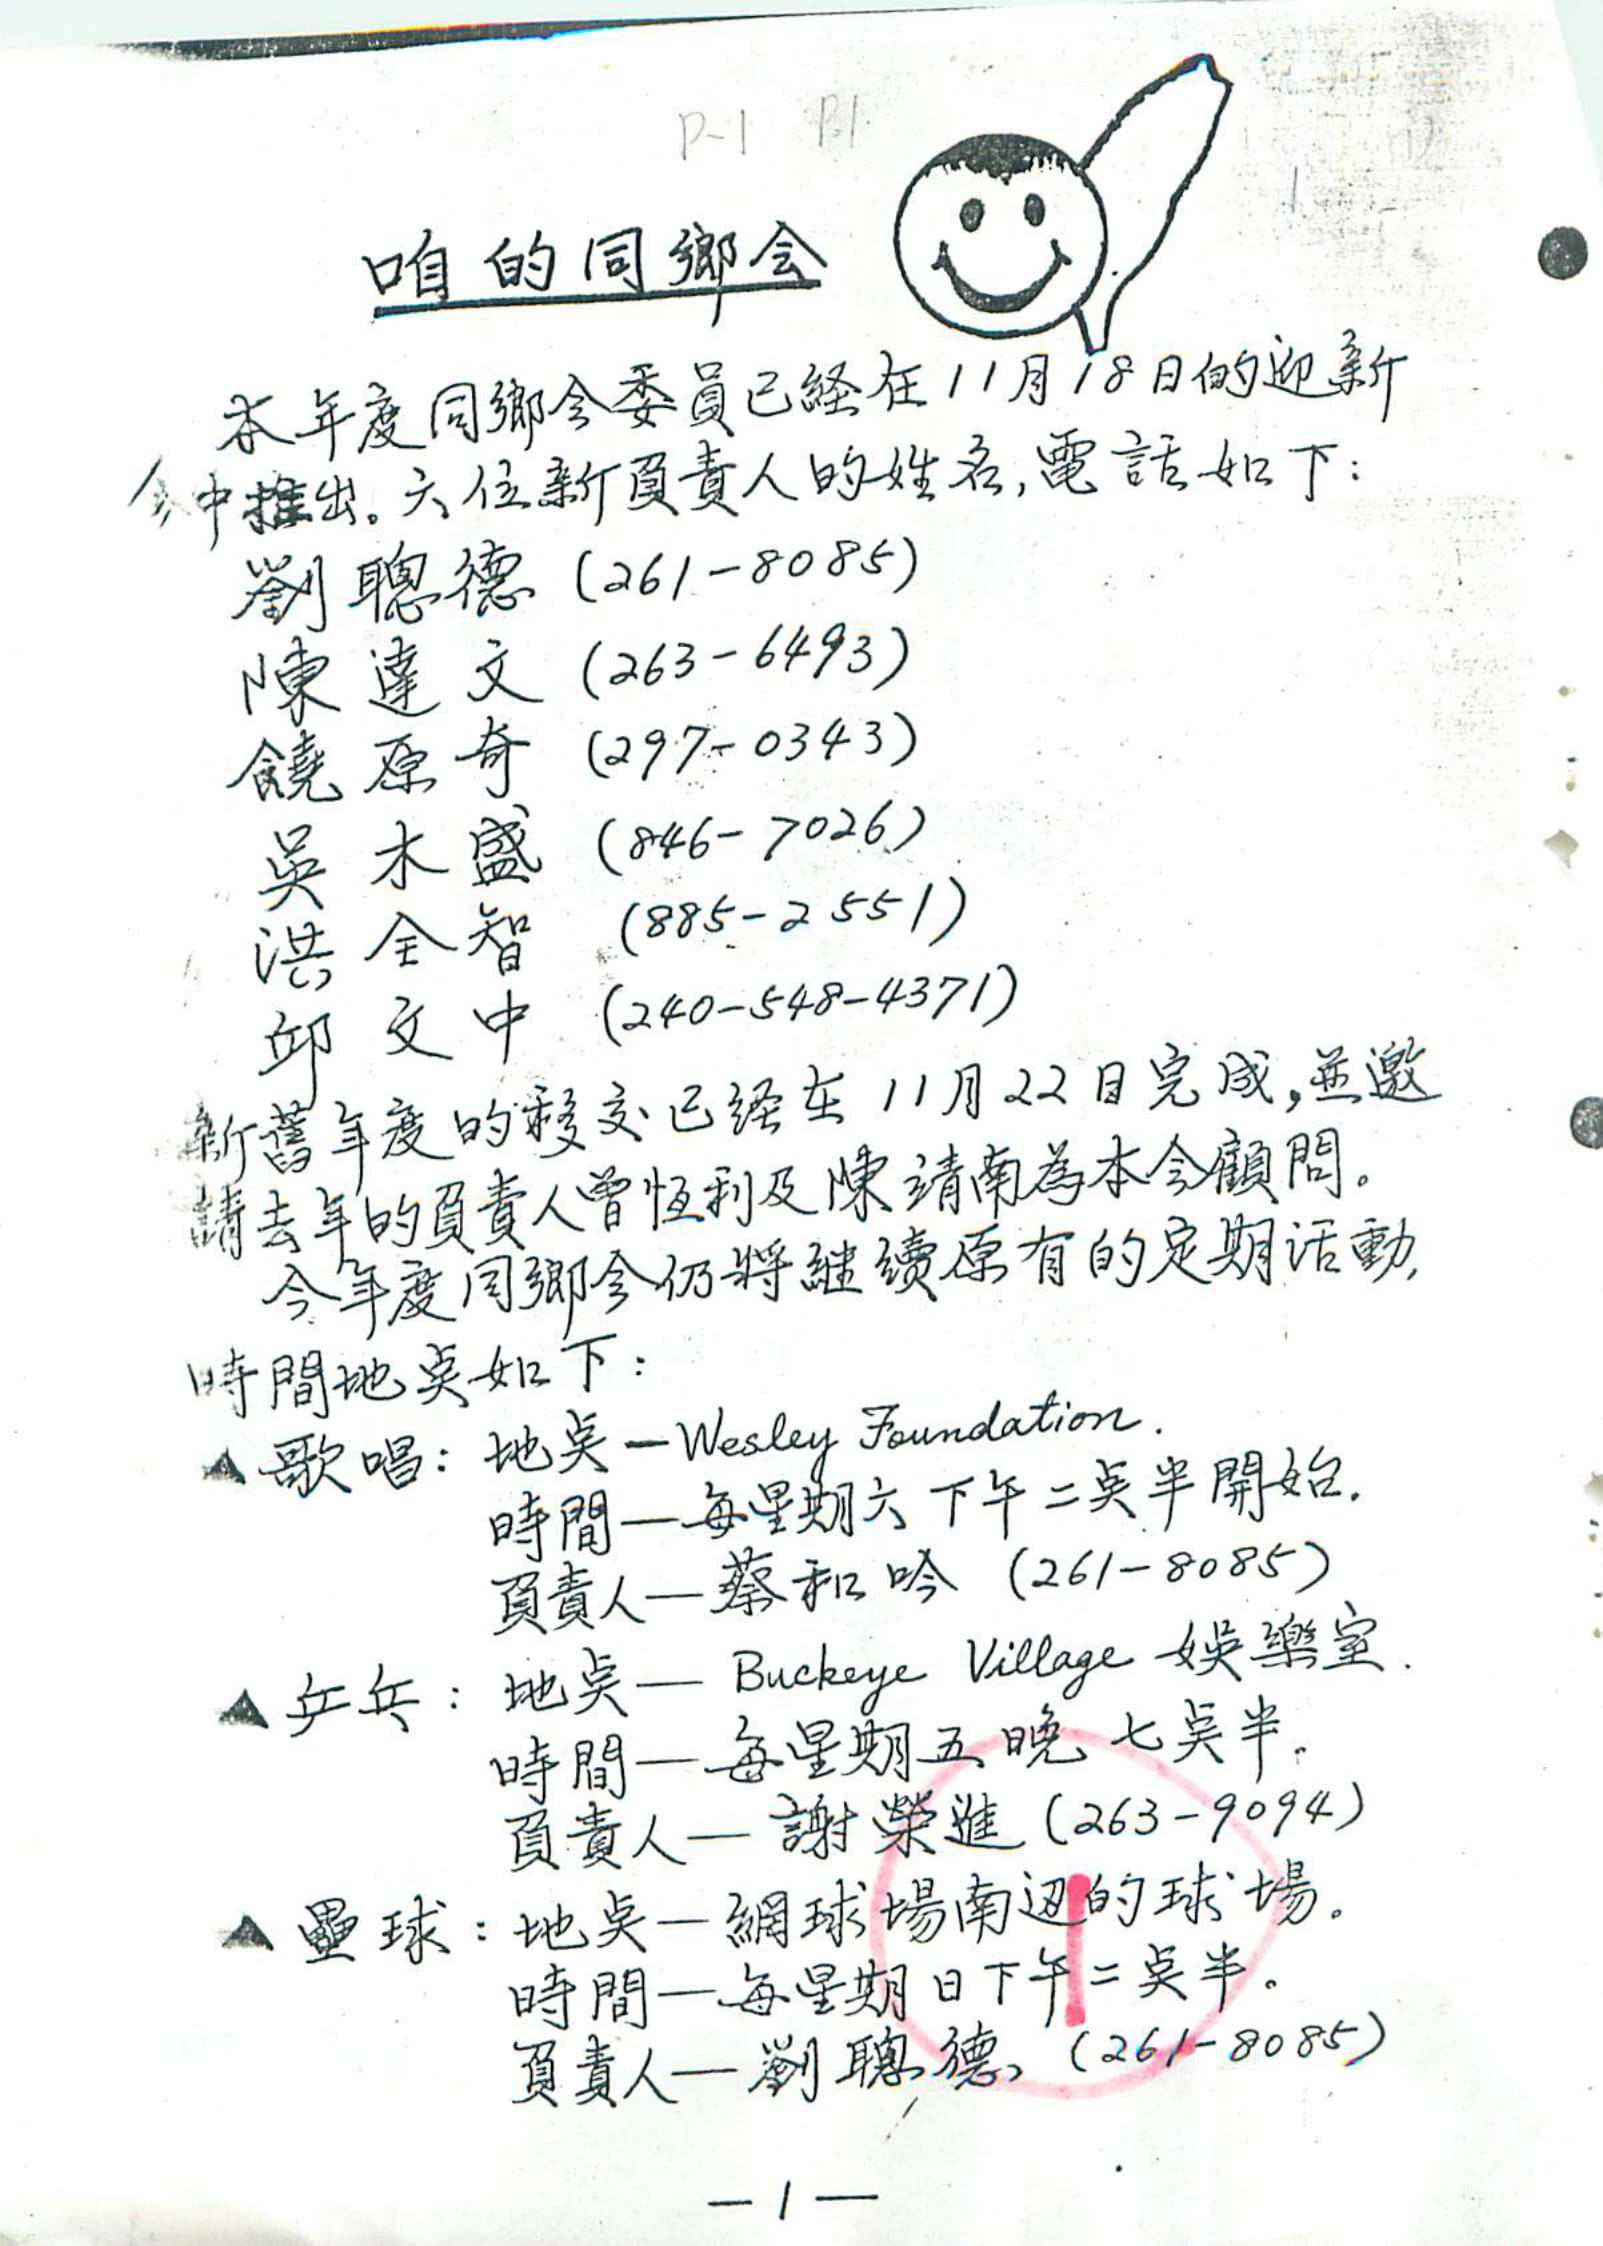 P-1 P.1
咱的同鄉会
本年度同鄉会委員已経在11月18日的迎新
会中推出。六位新負責人的姓名,電話如下:
劉聰德 (261-8085)
陳達文 (263-6493)
饒原奇 (297-0343)
吳木盛 (846-7026)
洪全智 (885-2551)
邱文中 (240-548-4371)
新舊年度的移交已経在11月22日完成,並邀
請去年的負責人曾恆利及陳靖南為本会顧問。
今年度同鄉会仍將継續原有的定期活動,
時間地奌如下:
▲歌唱: 地奌—Wesley Foundation.
時間—每星期六下午二奌半開始.
負責人—蔡和吟 (261-8085)
▲乒乓: 地奌—Buckeye Village 娛樂室.
時間—每星期五晚七奌半.
負責人—謝榮進 (263-9094)
▲壘球: 地奌—網球場南辺的球場。
時間—每星期日下午二奌半。
負責人—劉聰德, (261-8085)
1
—1—